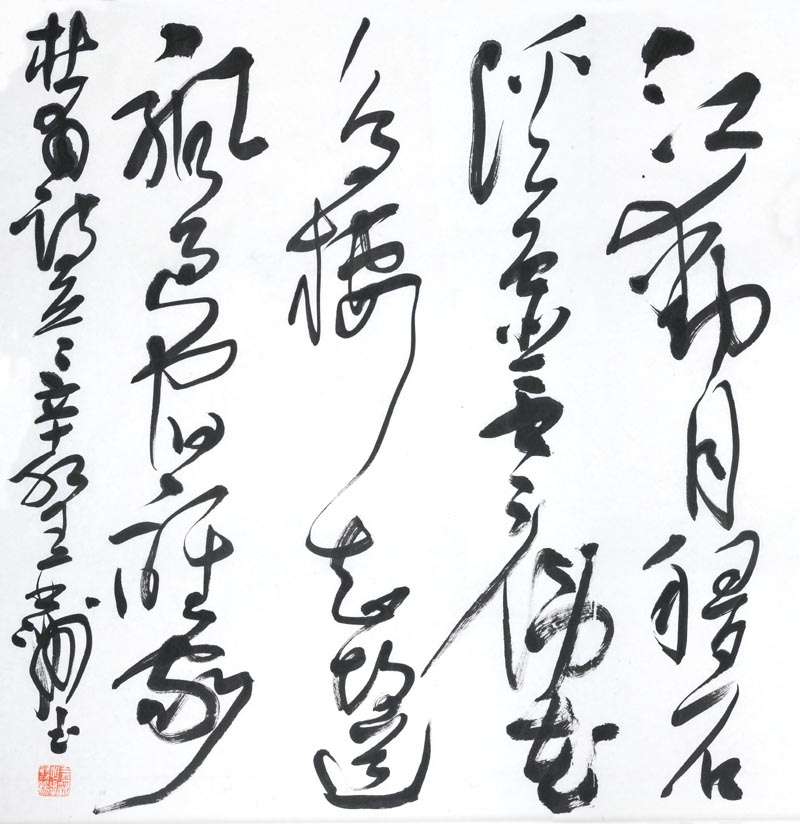 江動月移石
溪虛雲傍花
鳥棲知故道
帆過宿誰家
杜甫詩